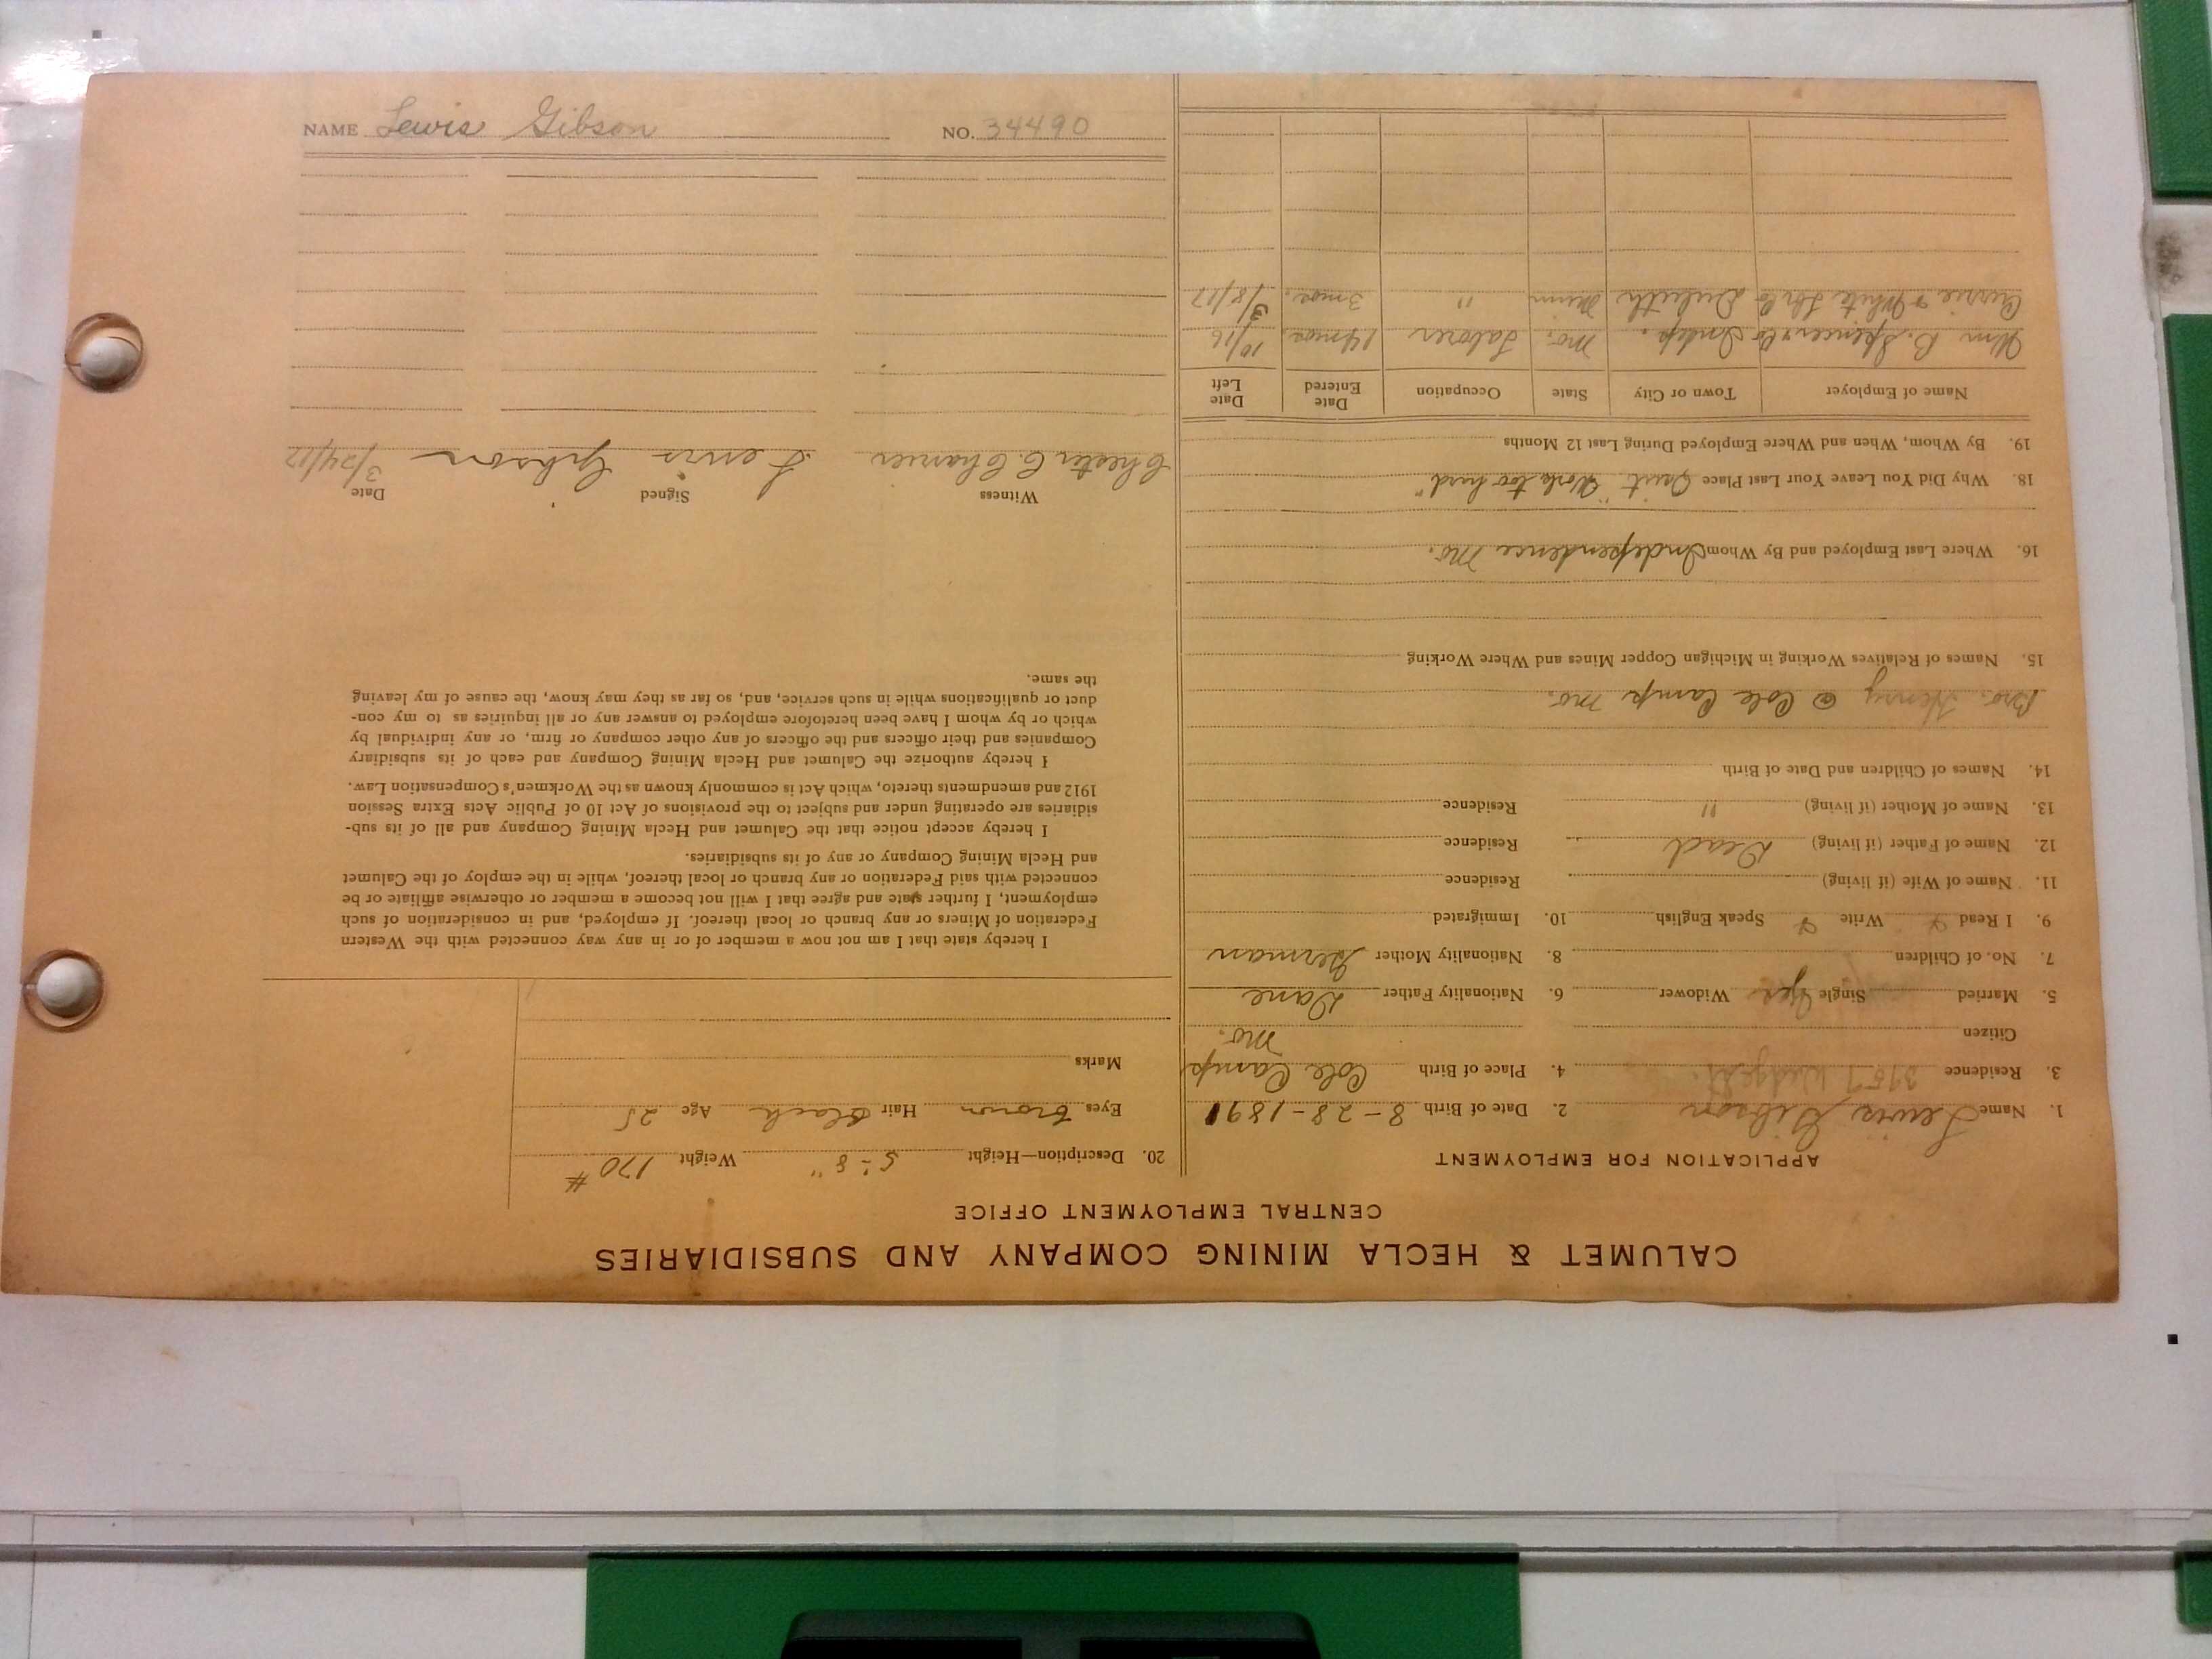 CALUMET & HECLA MINING COMPANY AND SUBSIDIARIES
CENTRAL EMPLOYMENT OFFICE
APPLICATION FOR EMPLOYMENT
1. Name Lewis Gibson 2. Date of Birth 8-28-1891
3. Residence 3957 4. Place of Birth Cole Camp
Citizen Mo.
5. Married Single Yes Widower 6. Nationality Father Dane
7. No. of Children 8. Nationality Mother German
9. I Read Write Speak English 10. Immigrated
11. Name of Wife (if living) Residence
12. Name of Father (if living) Dead Residence
13. Name of Mother (if living) " Residence
14. Names of Children and Date of Birth
Bro. Henry @ Cole Camp Mo.
15. Names of Relatives Working in Michigan Copper Mines and Where Working
16. Where Last Employed and By Whom Independence Mo.
18. Why Did You Leave Your Last Place Quit "Work too hard"
19. By Whom, When and Where Employed During Last 12 Months
Name of Employer Town or City State Occupation Date Entered Date Left
Wm B. Spencer & Co Indep. Mo. Laborer 14 mos. 10/16
Currie & White Duluth Minn " 3 mos. 3/8/17
20. Description—Height 5-8" Weight 170#
Eyes brown Hair Black Age 25
Marks
I hereby state that I am not now a member of or in any way connected with the Western
Federation of Miners or any branch or local thereof. If employed, and in consideration of such
employment, I further state and agree that I will not become a member or otherwise affiliate or be
connected with said Federation or any branch or local thereof, while in the employ of the Calumet
and Hecla Mining Company or any of its subsidiaries.
I hereby accept notice that the Calumet and Hecla Mining Company and all of its sub-
sidiaries are operating under and subject to the provisions of Act 10 of Public Acts Extra Session
1912 and amendments thereto, which Act is commonly known as the Workmen's Compensation Law.
I hereby authorize the Calumet and Hecla Mining Company and each of its subsidiary
Companies and their officers and the officers of any other company or firm, or any individual by
which or by whom I have been heretofore employed to answer any or all inquiries as to my con-
duct or qualifications while in such service, and, so far as they may know, the cause of my leaving
the same.
Witness Signed Date
Chester C. Lewis Gibson 3/24/17
NAME Lewis Gibson NO. 34490